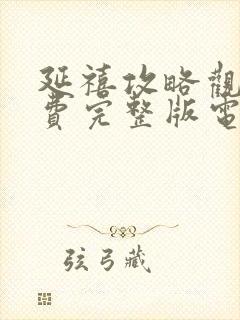 延禧攻略觀
費完整版電
弦弓藏